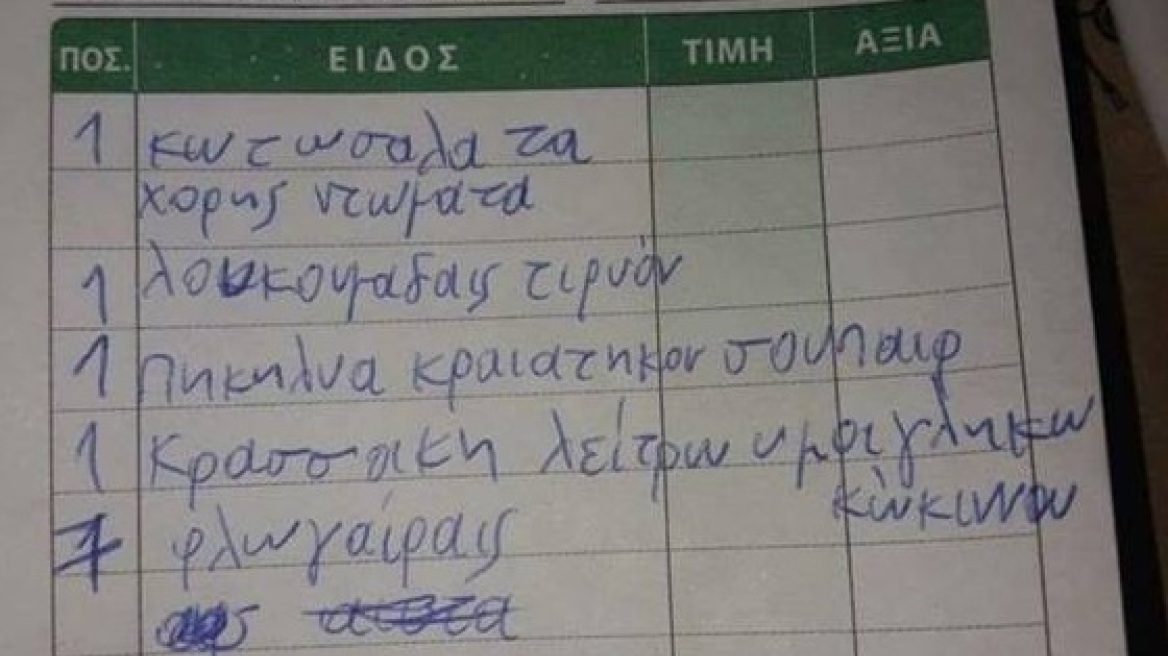 ΠΟΣ. ΕΙΔΟΣ ΤΙΜΗ ΑΞΙΑ
1 κωτωσαλατα
χορης ντωματα
1 λουκουμαδαις τιρυόν
1 πηκηλυα κραιατηκον σουπαιρ
1 κρασσακη λείτρω ημοιγληκω
κώκινου
7 φλωγαίραις